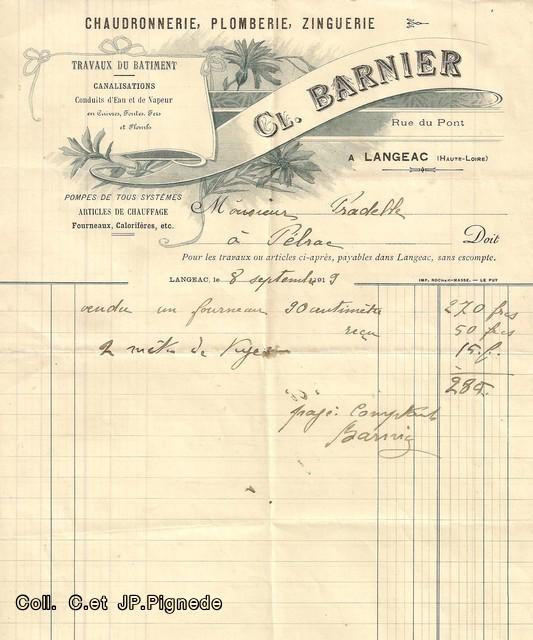 CHAUDRONNERIE, PLOMBERIE, ZINGUERIE
TRAVAUX DU BATIMENT
CANALISATIONS
Conduits d'Eau et de Vapeur
en Cuivres, Fontes, Fers
et Plombs
CL. BARNIER
Rue du Pont
A LANGEAC (HAUTE-LOIRE)
POMPES DE TOUS SYSTÈMES
ARTICLES DE CHAUFFAGE
Fourneaux, Calorifères, etc.
Monsieur Pradelle
à Pébrac Doit
Pour les travaux ou articles ci-après, payables dans Langeac, sans escompte.
LANGEAC, le 8 septembre 1913
IMP. ROCHER-MASSE. — LE PUY
vendu un fourneau 90 centimètre 270 frcs
reçu 50 frcs
2 mètre de 15 f.
285.
payé comptant
Barnier
Coll. C.et JP.Pignede